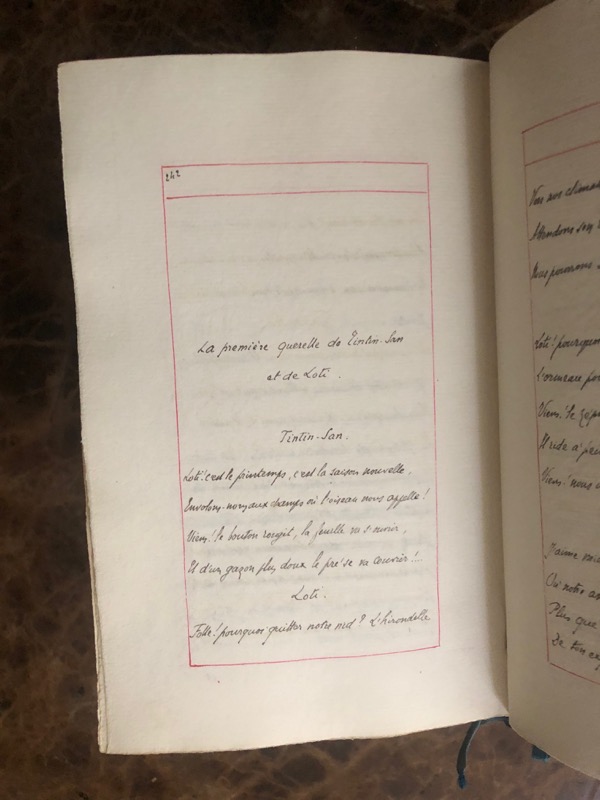 242
La première querelle de Tintin-San
et de Loti.
Tintin-San.
Loti! c'est le printemps, c'est la saison nouvelle,
Envolons-nous aux champs où l'oiseau nous appelle!
Viens! le bouton rougit, la feuille va s'ouvrir,
Et d'un gazon plus doux le pré se va couvrir!...
Loti.
Folle! pourquoi quitter notre nid? L'hirondelle
Vers nos
Abandonne son
Nous pourrons
Loti! pourquoi
L'ormeau
Viens! le
Et ride à
Viens! nous
J'aime
Oui notre
Plus que
De ton